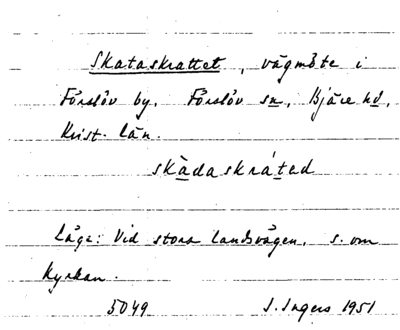 Skataskrattet, vägmöte i
Förslöv by, Förslöv sn, Bjäre hd,
Krist. län.
skàdaskráted
Läge: Vid stora landsvägen, s. om
kyrkan.
5049 I. Ingers 1951